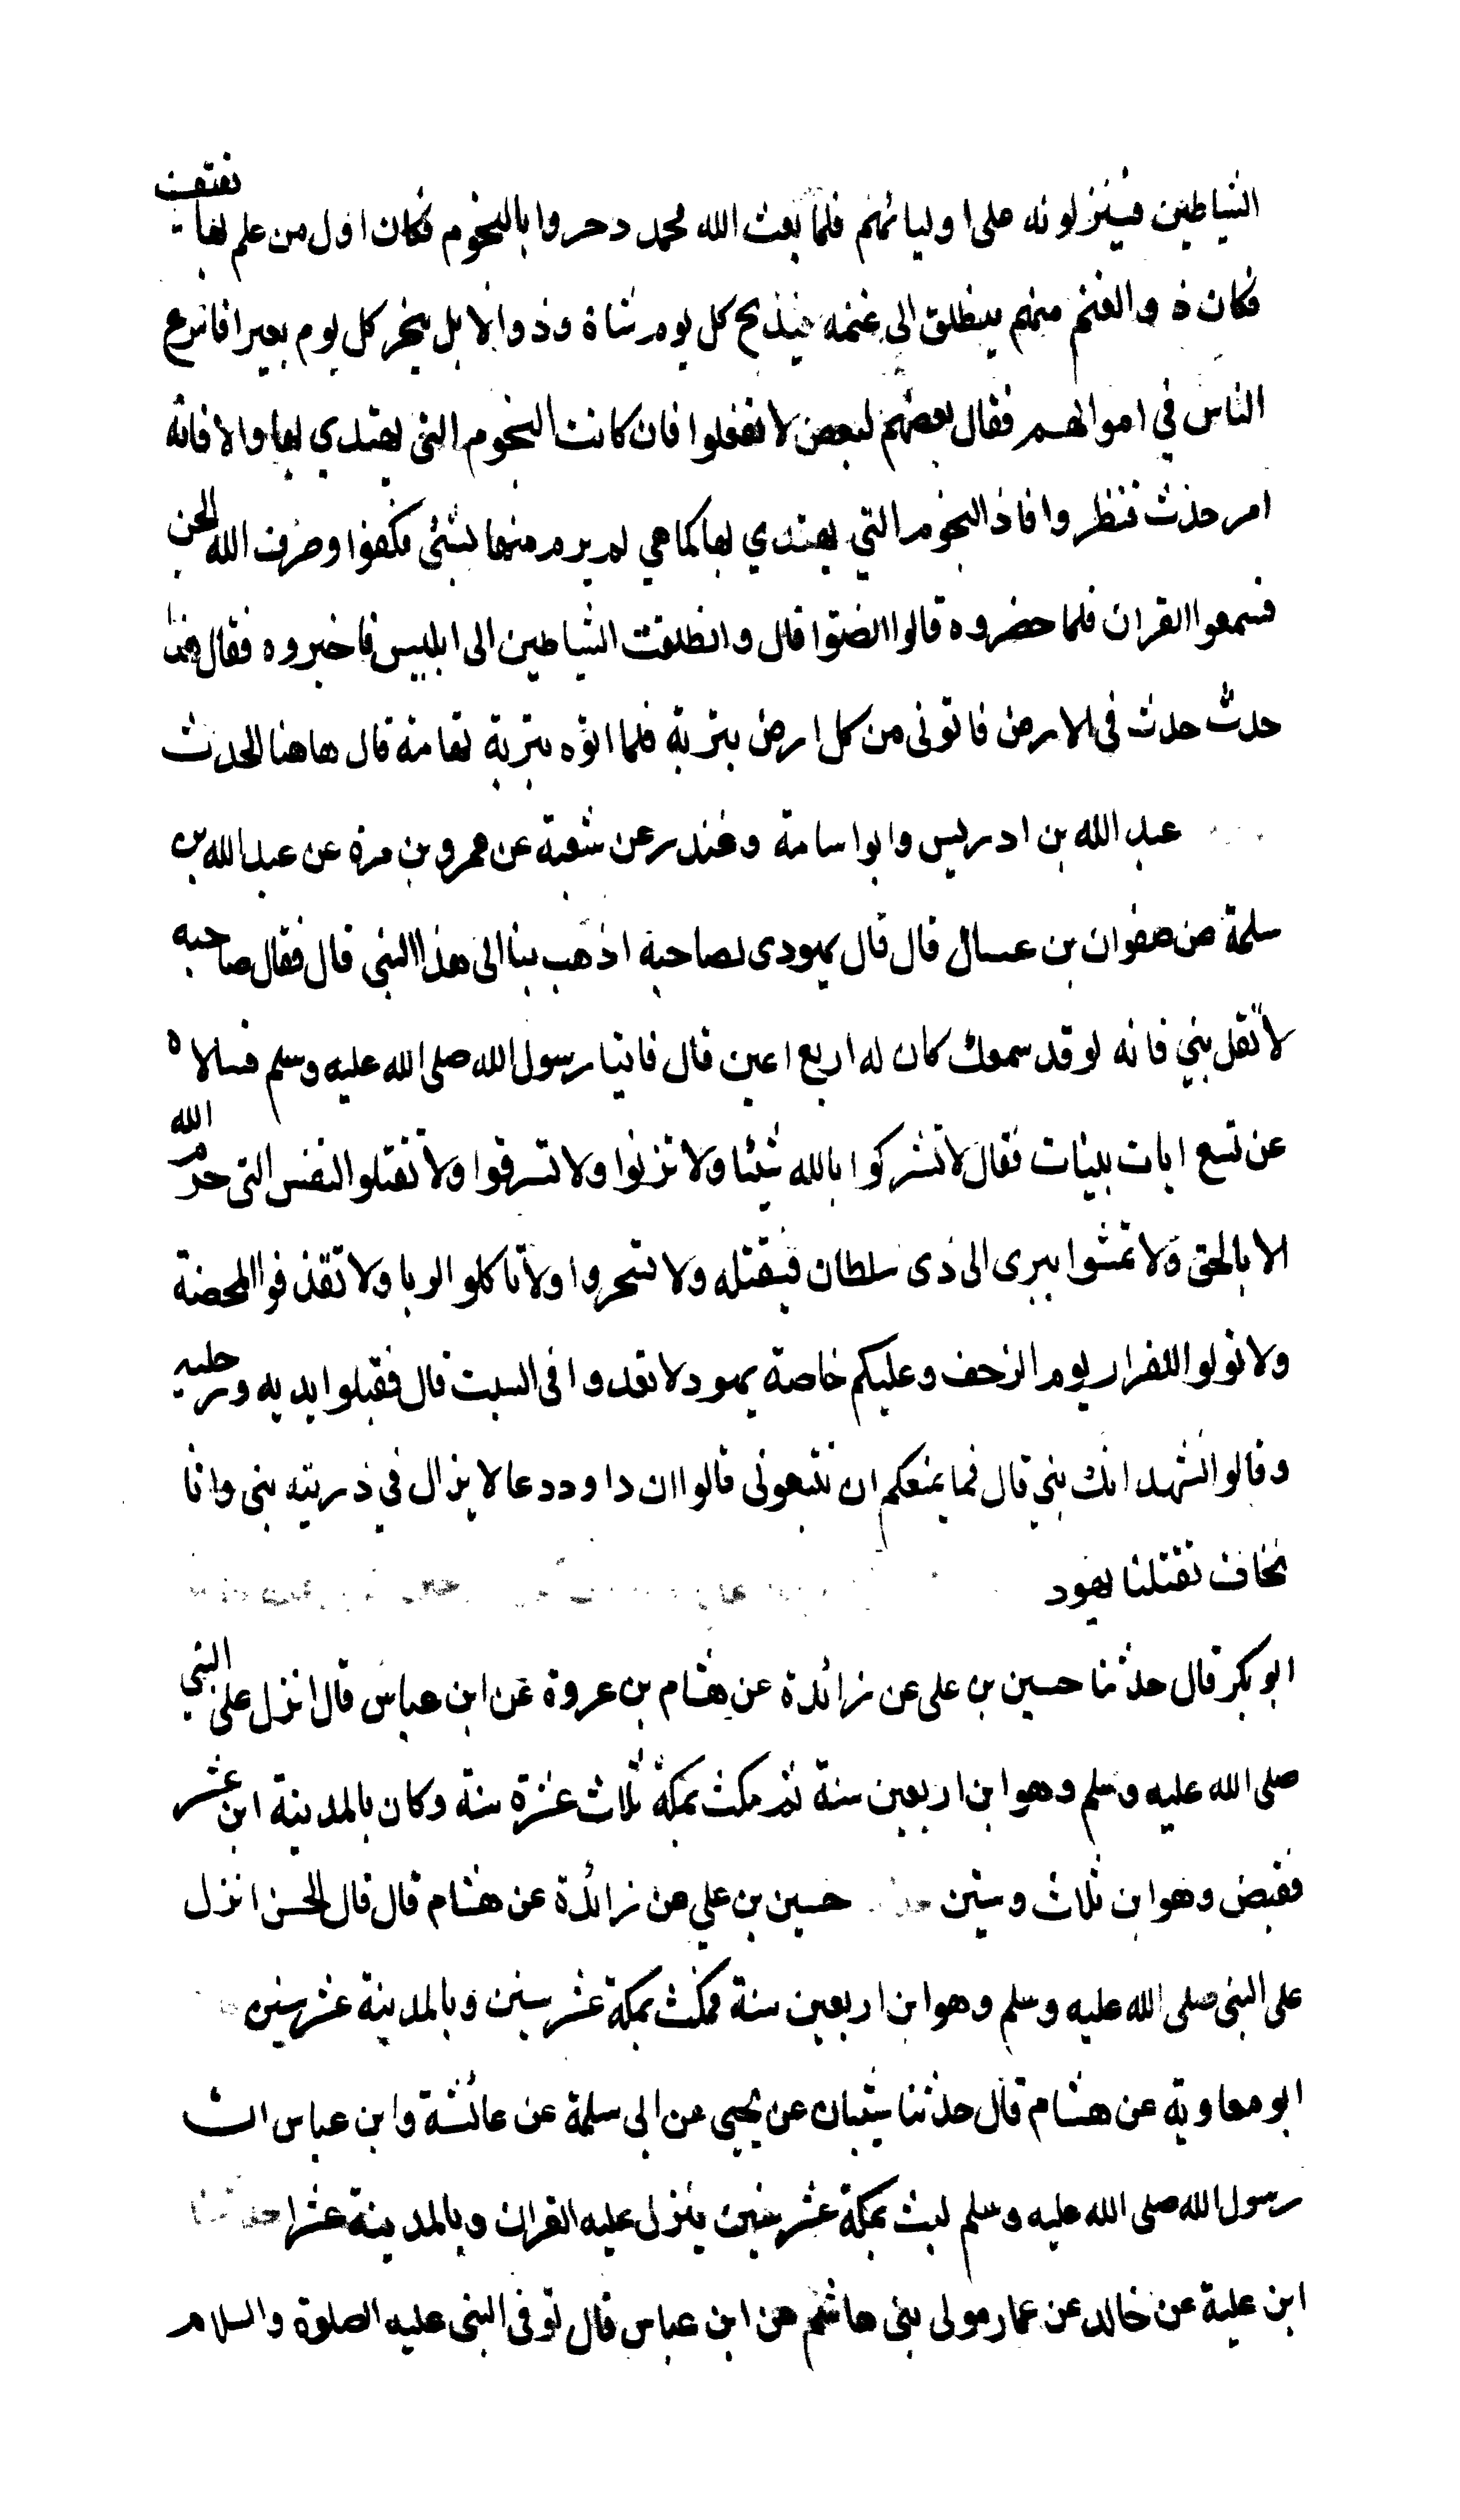 الشياطين فينزلونه على اوليائهم فلما بعث الله محمد دحروا بالنجوم فكان اول من علم بها ثقيف
فكان ذو الغنم منهم ينطلق الى غنمه فيذبح كل يوم شاة وذو الابل ينحر كل يوم بعيرا فاسرع
الناس في اموالهم فقال بعضهم لبعض لا تفعلوا فان كانت النجوم التي يهتدي بها والا فانه
امر حدث فنظروا فاذا النجوم التي يهتدي بها كما هي لم يرم منها بشئ فكفوا وصرف الله الجن
فسمعوا القران فلما حضروه قالوا انصتوا قال وانطلقت الشياطين الى ابليس فاخبروه فقال هذا
حدث حدث في الارض فاتونى من كل ارض بتربة فلما اتوه بتربة تهامة قال هاهنا الحدث
عبد الله بن ادريس وابو اسامة وغندر عن شعبة عن عمرو بن مرة عن عبد الله بن
سلمة عن صفوان بن عسال قال قال يهودى لصاحبه اذهب بنا الى هذا النبى قال فقال صاحبه
لا تقل نبي فانه لو قد سمعك كان له اربع اعين قال فاتيا رسول الله صلى الله عليه وسلم فسالاه
عن تسع ايات بينات فقال لا تشركوا بالله شيئا ولا تزنوا ولا تسرقوا ولا تقتلوا النفس التى حرم الله
الا بالحق ولا تمشوا ببرى الى ذى سلطان فيقتله ولا تسحروا ولا تاكلوا الربا ولا تقذفوا المحصنة
ولا تولوا للفرار يوم الزحف وعليكم خاصة يهود لا تعدوا فى السبت قال فقبلوا يديه ورجليه
وقالوا نشهد انك نبي قال فما يمنعكم ان تتبعونى قالوا ان داود دعا لا يزال في ذريته نبى وانا
نخاف تقتلنا يهود
ابو بكر قال حدثنا حسين بن على عن زائدة عن هشام بن عروة عن ابن عباس قال انزل على النبي
صلى الله عليه وسلم وهو ابن اربعين سنة ثم مكث بمكة ثلاث عشرة سنة وكان بالمدينة ابن عشر
فقبض وهو ابن ثلاث وستين حسين بن علي عن زائدة عن هشام قال قال الحسن انزل
على النبى صلى الله عليه وسلم وهو ابن اربعين سنة فمكث بمكة عشر سنين وبالمدينة عشر سنين
ابو معاوية عن هشام قال حدثنا شيبان عن يحيى عن ابى سلمة عن عائشة وابن عباس ان
رسول الله صلى الله عليه وسلم لبث بمكة عشر سنين ينزل عليه القران وبالمدينة عشرا حدثنا
ابن علية عن خالد عن عمار مولى بنى هاشم عن ابن عباس قال توفى النبى عليه الصلوة والسلام